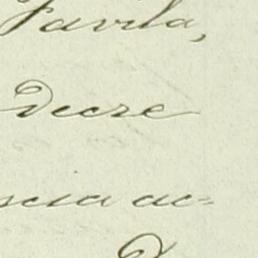 Favila,
Decre
scia ac=
D